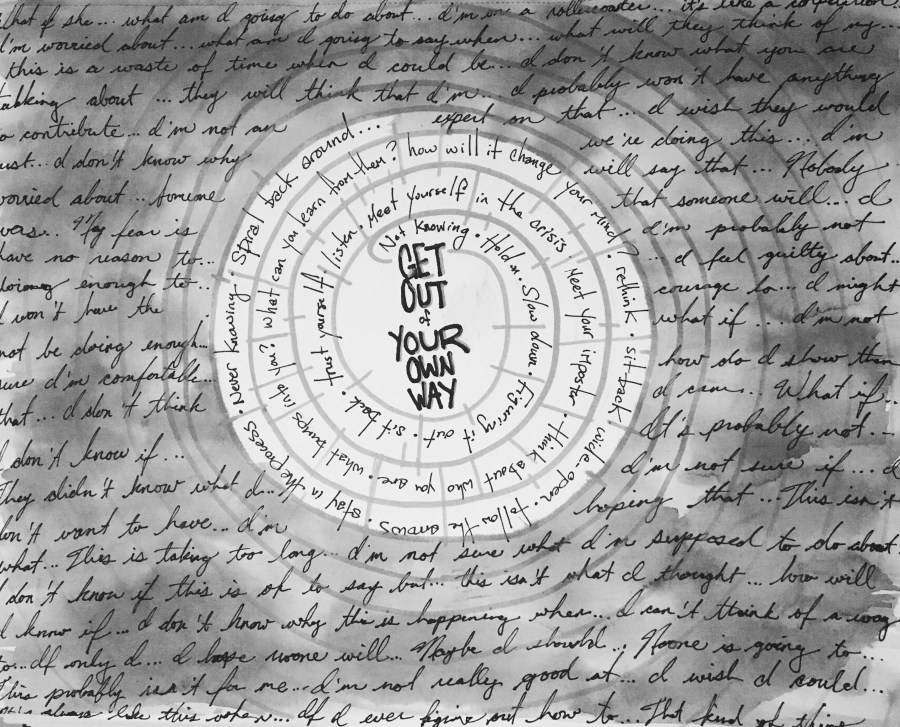 what if she... what am I going to do about... I'm on a rollercoaster... it's like a
I'm worried about... what am I going to say when... what will they think of my...
this is a waste of time when I could be... I don't know what you are
talking about ... they will think that I'm... I probably won't have anything
to contribute... I'm not an expert on that... I wish they would
just... I don't know why we're doing this... I'm
worried about ... will say that ... Nobody
was... My fear is that someone will... I
have no reason to... I'm probably not
enough to... ... I feel guilty about...
I won't have the courage to... I might
what if ... I'm not
not be doing enough... how do I show them
sure I'm comfortable... I can... What if...
that... I don't think It's probably not...
I don't know if ... I'm not sure if... I
They didn't know what I... hoping that... This isn't
don't want to have... I'm
what... This is taking too long... I'm not sure what I'm supposed to do about
I don't know if this is ok to say but... this isn't what I thought... how will
I know if... I don't know why this is happening when... I can't think of a way
to... If only I... I hope noone will... Maybe I should... Noone is going to...
This probably isn't for me... I'm not really good at... I wish I could...
always like this when... If I ever figure out how to... That kind of thing
Not Knowing • Hold on • Slow down • Figuring it out • sit back • trust yourself • listen • Meet Yourself in the crisis • Meet your imposter • think about who you are • what bumps into you? what can you learn from them? how will it change your mind? rethink • sit-back • wide-open • follow the arrows • stay in the process • Never knowing • Spiral back around...
GET
OUT
of
YOUR
OWN
WAY